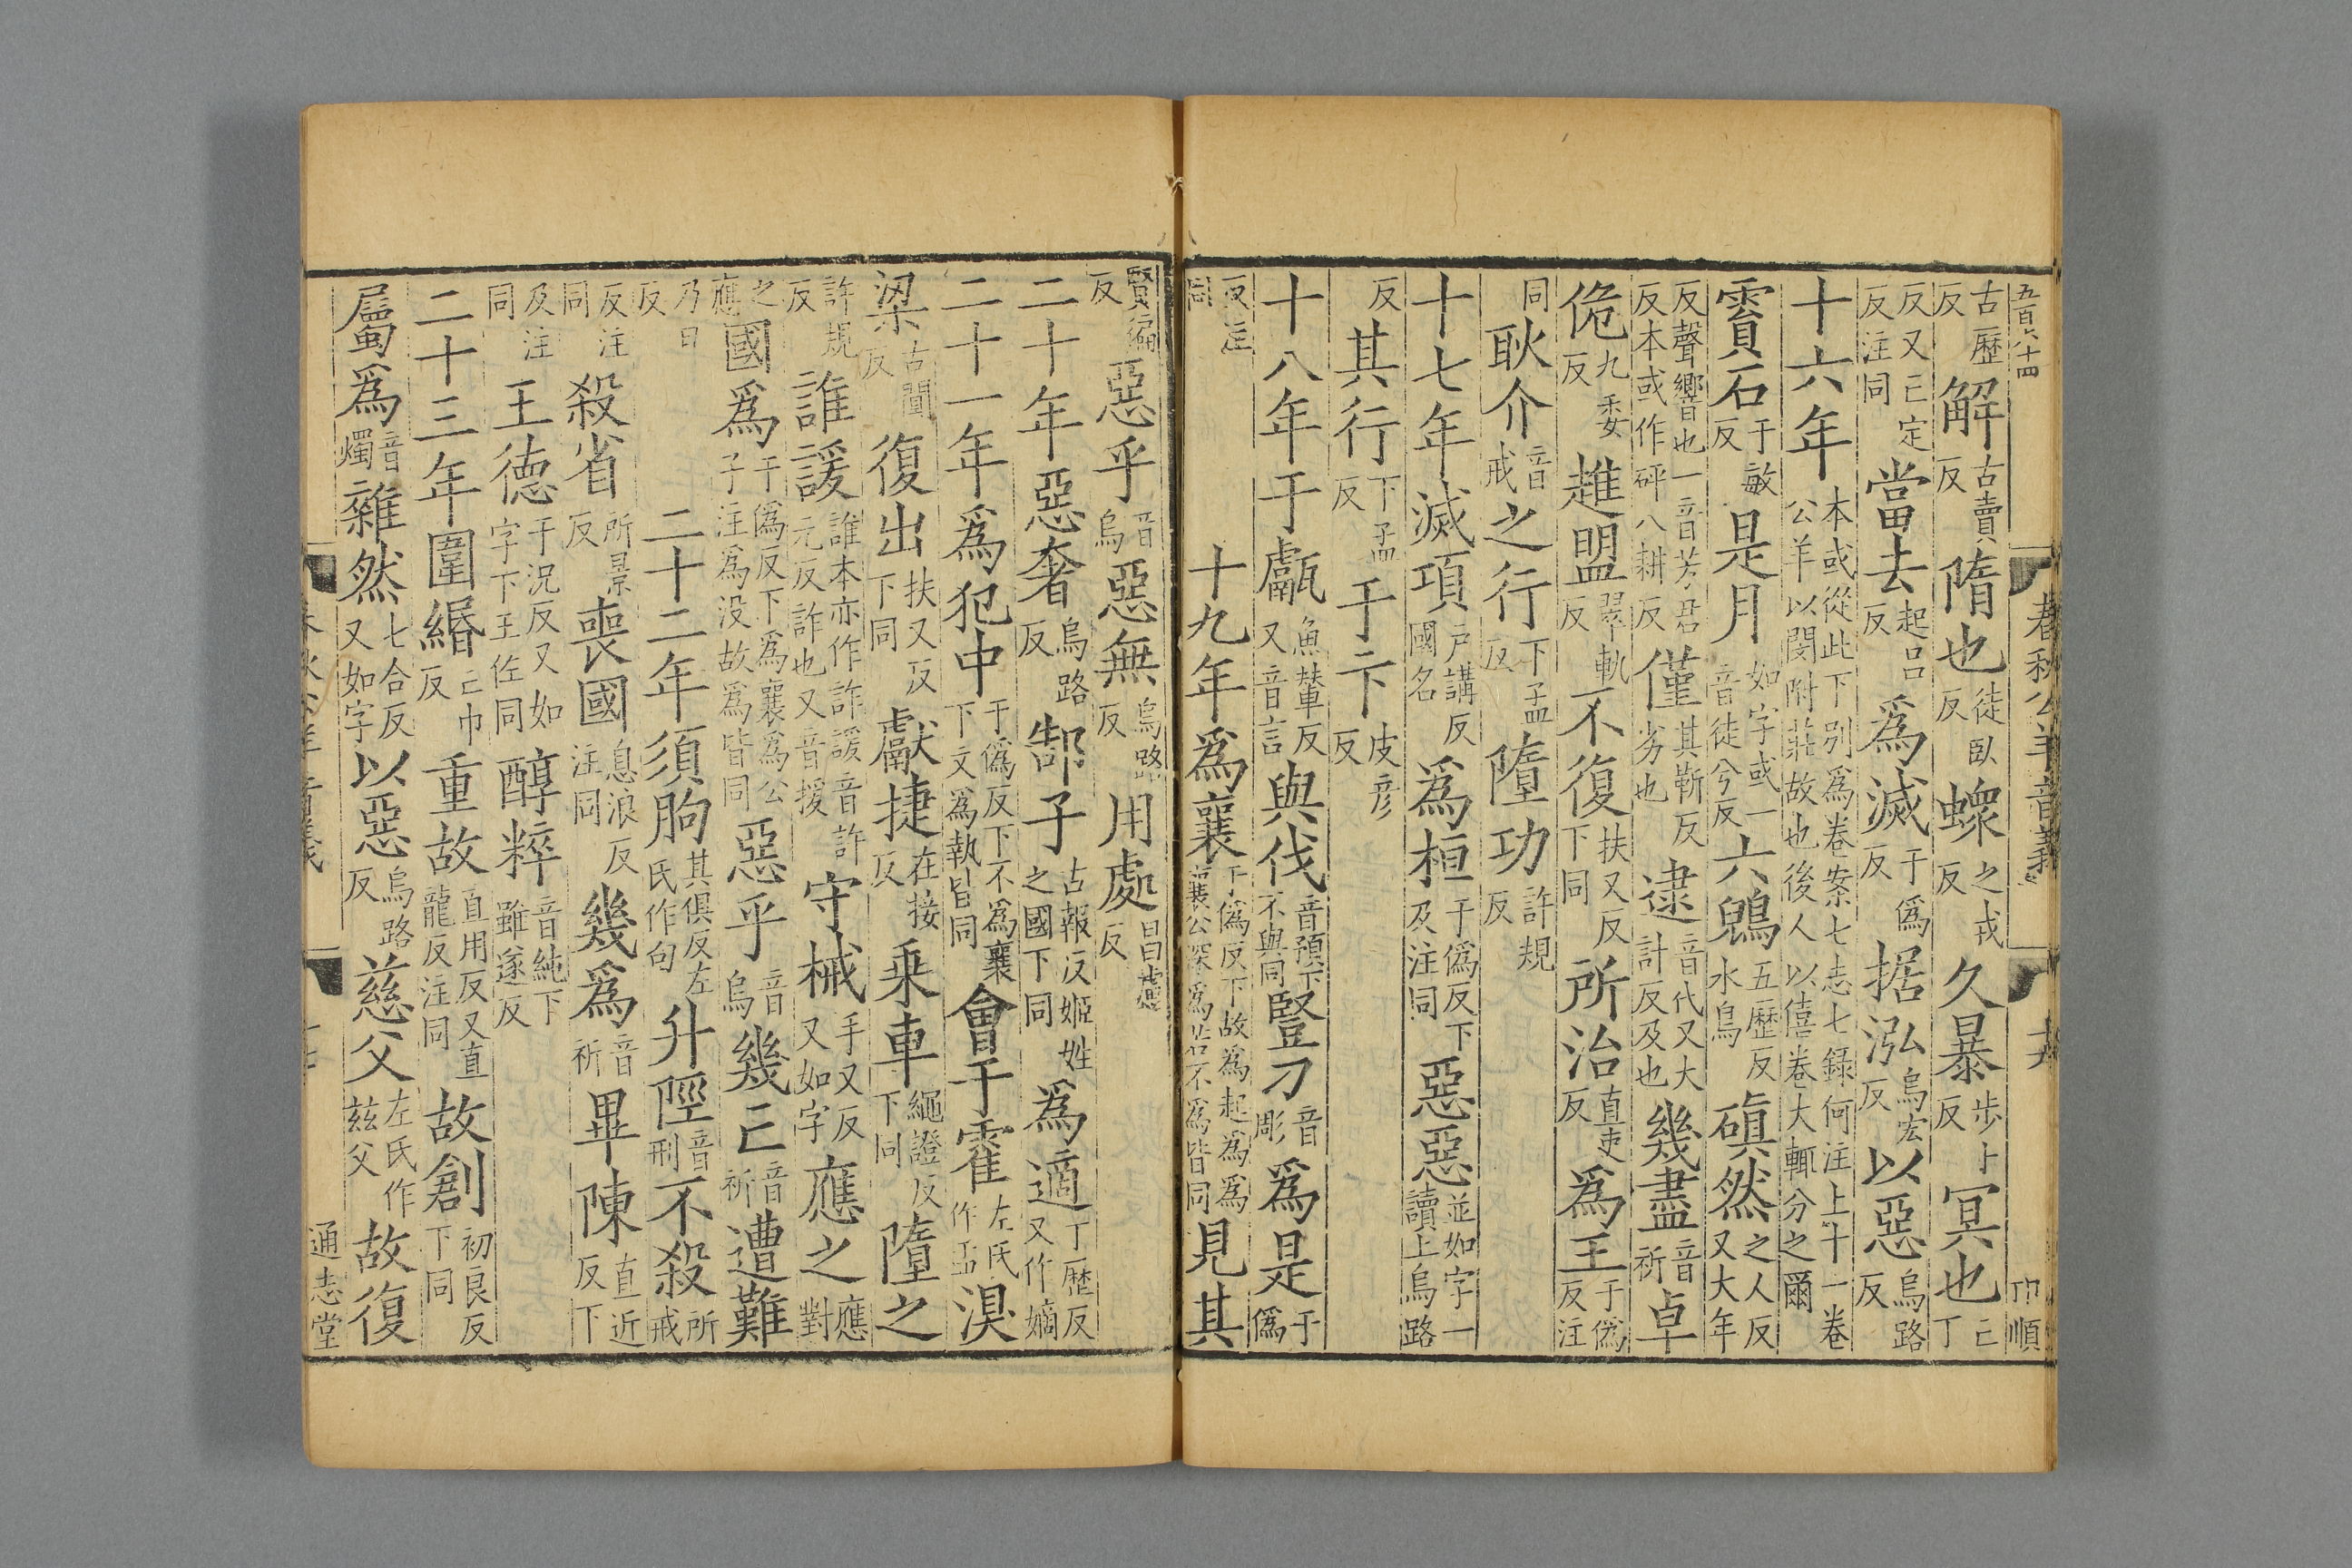 五百六十四 春秋公羊音義 十六 卬順
古歷反解古賣反隋也徒臥反螽之戎反久暴步卜反冥也亡丁
反又亡定反注同當去起呂反為滅于偽反据泓烏宏反以惡烏路反
十六年本或從此下別為卷案七志七錄何注上十一卷公羊以閔附莊故也後人以僖卷大輒分之爾
霣石于敏反是月如字或一音徒兮反六鶂五歷反水鳥磌然之人反又大年
反聲響也一音芳君反本或作砰八耕反僅其靳反劣也逮音代又大計反及也幾盡音祈卓
佹九委反趡盟翠軌反不復扶又反下同所治直吏反為王于偽反注
同耿介音戒之行下孟反墮功許規反
十七年滅項戶講反國名為桓于偽反下及注同惡惡並如字一讀上烏路
反其行下孟反于卞皮彥反
十八年于甗魚輦反又音言與伐音預下不與同豎刁音彫為是于偽
反注同十九年為襄于偽反下故為起為為襄公深為若不為皆同見其
賢徧反惡乎音烏惡無烏路反用處昌慮反
二十年惡奢烏路反郜子古報反姬姓之國下同為適丁歷反又作嫡
二十一年為犯中于偽反下不為襄下文為執皆同會于霍左氏作盂湨
梁古闃反復出扶又反下同獻捷在接反乘車繩證反下同墮之
許規反誰諼誰本亦作詐諼音許元反詐也又音援守械手又反又如字應之應對
之應國為于偽反下為襄為公子注為沒故為皆同惡乎音烏幾亡音祈遭難
乃旦反二十二年須朐其俱反左氏作句升陘音刑不殺所戒
反注同殺省所景反喪國息浪反注同幾為音祈畢陳直近反下
及注同王德于況反又如字下王佐同醇粹音純下雖遂反
二十三年圍緡亡巾反重故直用反又直龍反注同故創初良反下同
屬為音燭雜然七合反又如字以惡烏路反慈父左氏作茲父故復
春秋公羊音義 通志堂